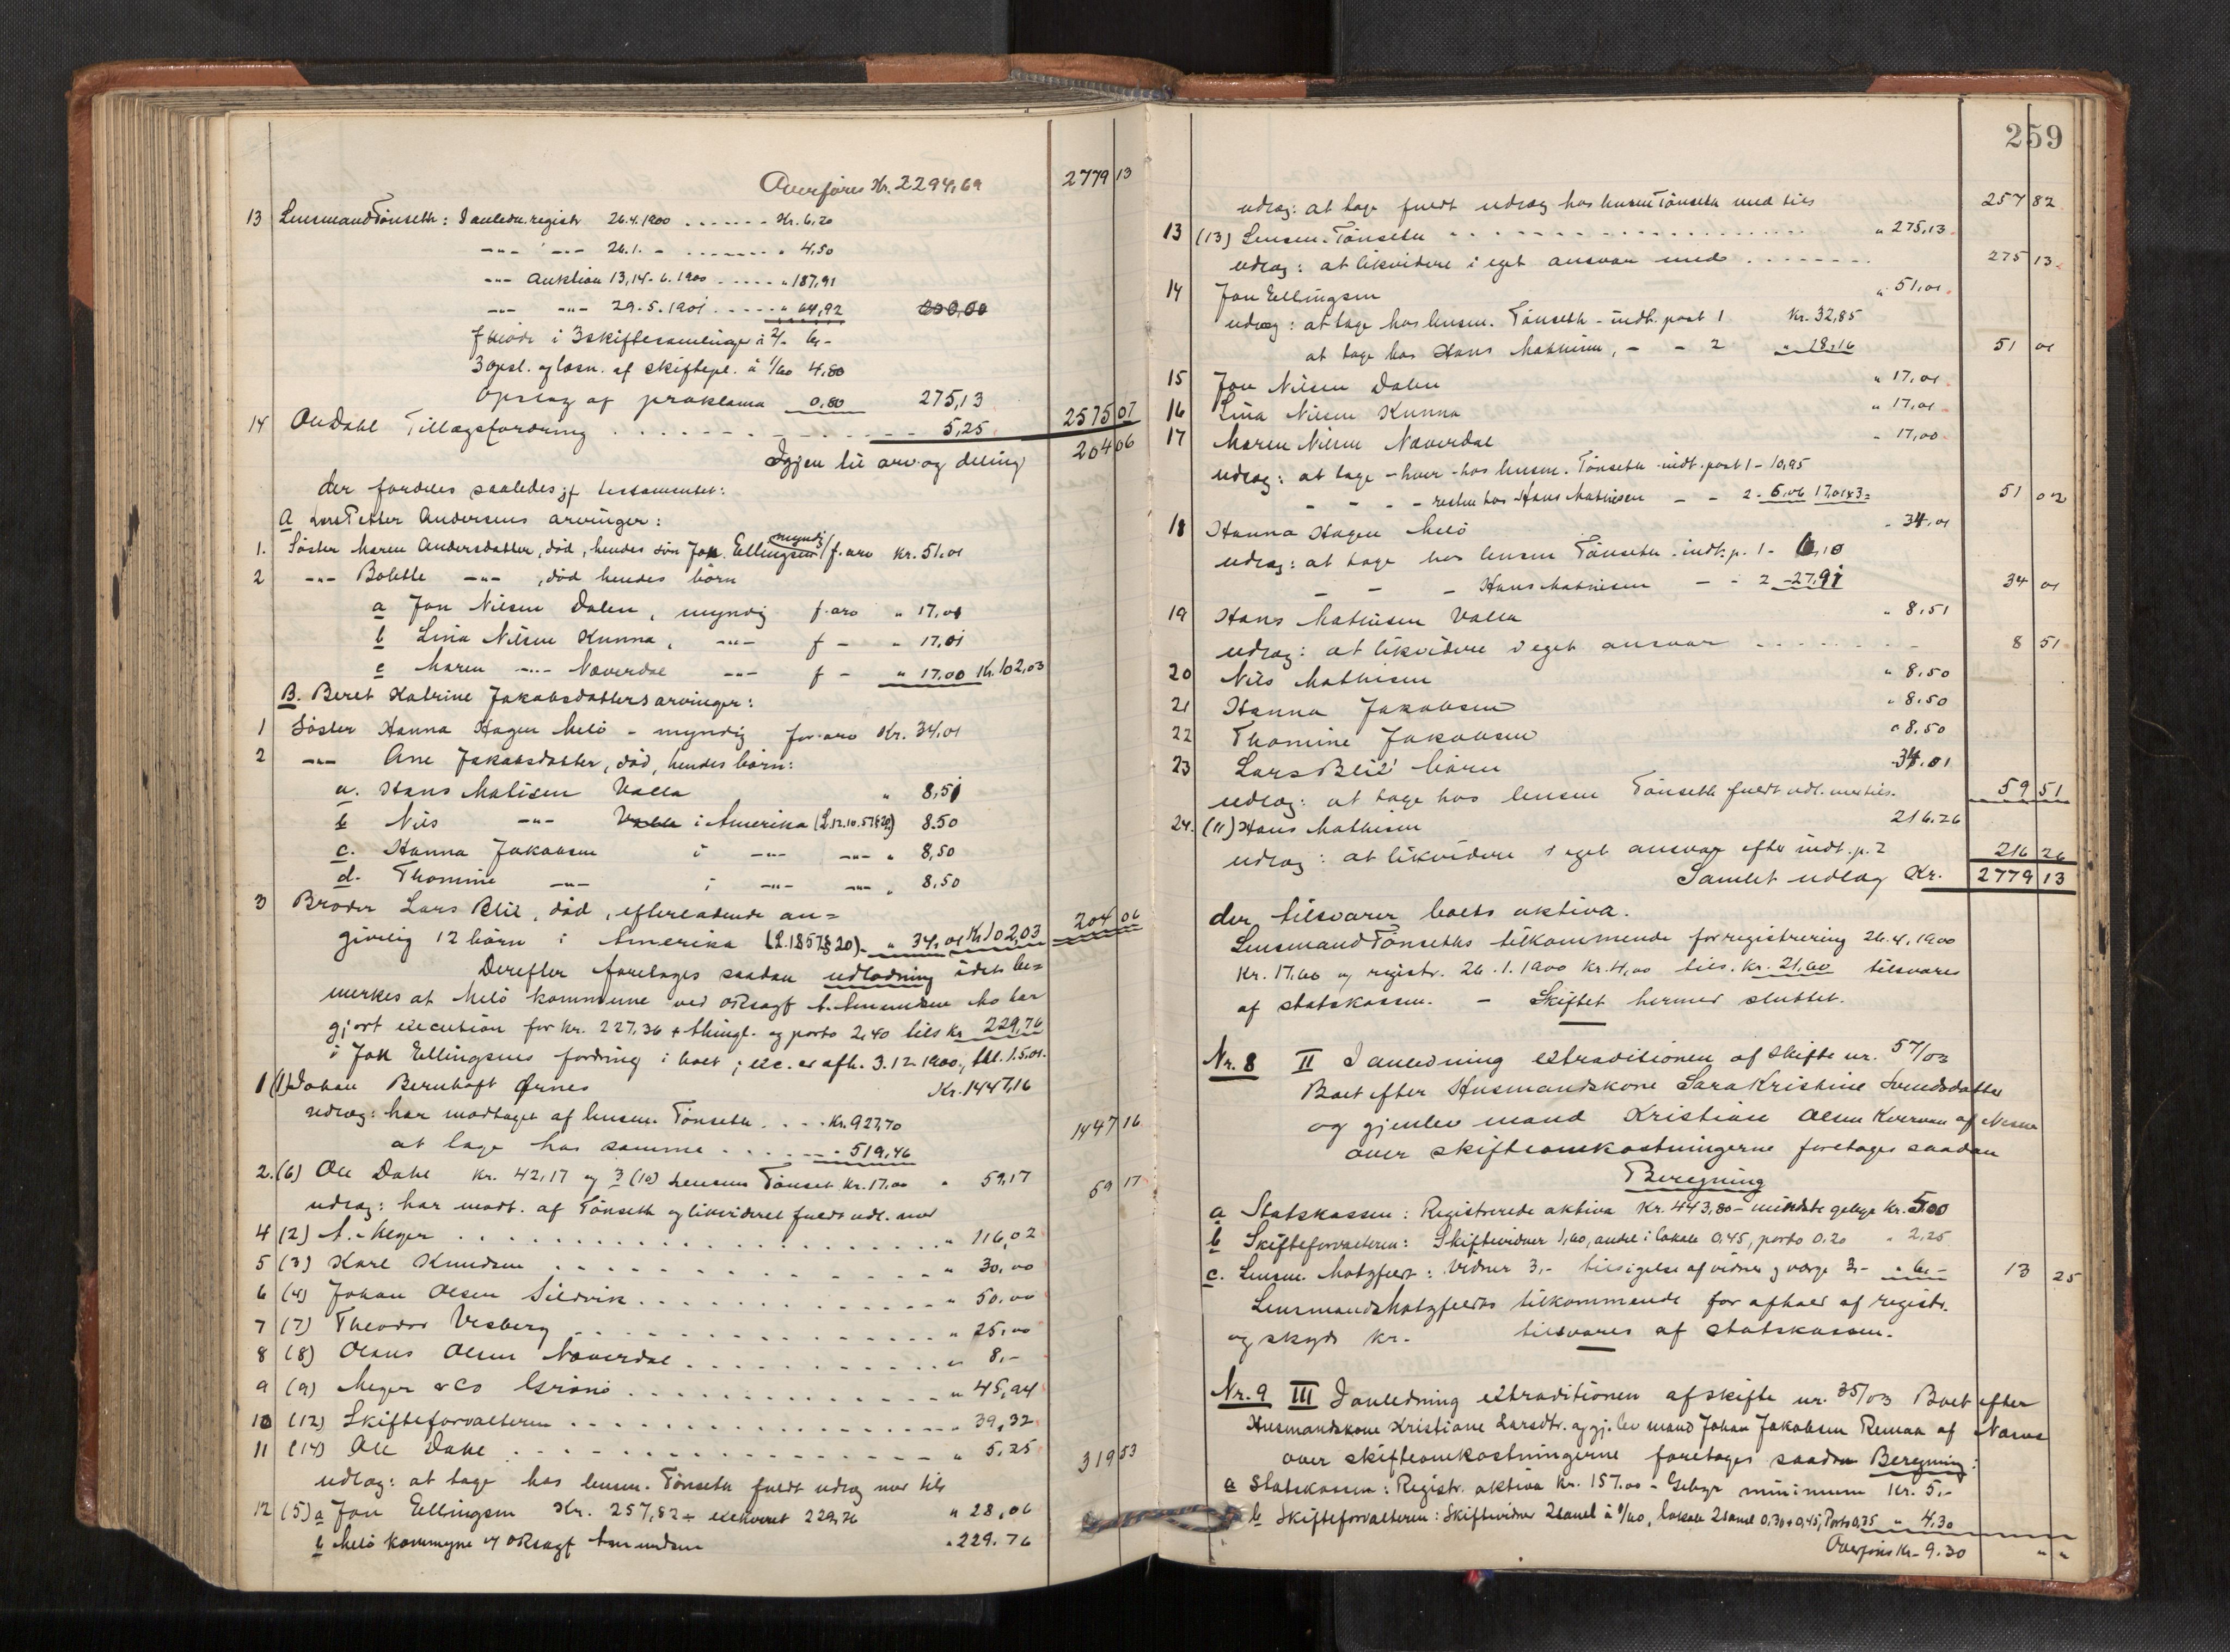 Overføres Kr. 2294,69 2779 13
13 Lensmand Tönseth: I anledn. registr 26.4.1900 . . . . . . . Kr. 6,20
-„- -„- 26.1. - . . . . . . . „ 4,50
-„- Auktion 13,14-6.1900 . . . . . „ 187,91
-„- -„- 29.5.1901 . . . . . „ 64,92
fmöde i 3 skiftesamlinger à 2/- 6,-
3 opsl. og læsn. af skiftepl. à 1/60 4,80
Opslag af proklama 0,80 275,13
14 Ole Dahl Tillægsfordring . . . . . . . . . 5,25 2575 07
Igjen til arv og deling 204 06
der fordeles saaledes jf testamentet:
A Petter Andersens arvinger:
1. Söster Maren Andersdatter, död, hendes sön Jon Ellingsen myndig f. arv Kr. 51.01
2 -„- Bolette -„-, död hendes börn
a Jon Nilsen Dalen, myndig f. arv „ 17,01
b Lina Nilsen Kunna, -„- f - „ 17,01
c Maren -„- Næverdal -„- f - „ 17,00 Kr. 102,03
B. Beret Katrine Jakobsdatters arvinger:
1 Söster Hanna Hagen Melö - myndig for arv Kr. 34,01
2 -„- Ane Jakobsdatter, död, hendes börn:
a. Hans Matisen Valla „ 8,51
b Nils -„- Valla i Amerika (L.12.10.57§20) 8.50
c. Hanna Jakobsen i -„- -„- „ 8,50
d. Thomine -„- i -„- -„- „ 8,50
3 Broder Lars Blix, död, efterladende an=
givelig 12 börn i Amerika (L.1857§20) - „ 34,01 Kr. 102,03 204 06
Derefter foretages saadan udlodning idet be=
merkes at Melö kommune ved ORsagf A. Amundsen Mo har
gjort execution for Kr. 227,36 + thingl. og porto 2,40 tils Kr 229,76
i Jon Ellingsens fordring i boet; exc. er afh. 3.12.1900, tll. 1.5.01.
1 (1) Johan Bernhoft Ørnes Kr. 1447,16
udlæg: har modtaget af lensm. Tönseth . . . . Kr. 927,70
at tage hos samme . . . . . . - 519,46 1447 16
2. (6) Ole Dahl Kr. 42,17 og 3 (10) Lensm. Tönset Kr. 17,00 „ 59,17
udlæg: har modt. af Tönseth og likvideret fuldt udl. med 59 17
4 (2) A. Meyer . . . . . . . . . . „ 116,02
5 (3) Karl Knudsen . . . . . . . . „ 30,00
6 (4) Johan Olsen Sildvik . . . . . . „ 50.00
7 (7) Theodor Vesberg . . . . . . . „ 25,00
8 (8) Olaus Olsen Næverdal . . . . . . „ 8,-
9 (9) Meyer & Co Grönö . . . . . . . „ 45,94
10 (12) Skifteforvalteren . . . . . . . „ 39,32
11 (14) Ole Dahl . . . . . . . . . . „ 5,25
udlæg: at tage hos lensm. Tönseth fuldt udlæg med tils 319 53
12 (5) a Jon Ellingsen Kr. 257,82 ÷ exekveret 229,76 „ 28,06
b Melö kommune v/ ORsagf Amundsen „ 229.76
259
udlæg: at tage fuldt udlæg hos lensm Tönseth med tils 257 82
13 (13) Lensm. Tönseth . . . . . . . . . . „ 275,13
udlæg: at likvidere i eget ansvar med . . . . . . . 275 13
14 Jon Ellingsen „ 51,01
udlæg: at tage hos lensm. Tönseth - indt. post 1 Kr. 32,85
at tage hos Hans Mathisen, - - 2 „ 18,16 51 01
15 Jon Nilsen Dalen „ 17,01
16 Lina Nilsen Kunna „ 17,01
17 Maren Nilsen Næverdal „ 17,00
udlæg: at tage - hver - hos lensm. Tönseth - indt. post 1 - 10,95
- - - resten hos Hans Mathisen - - 2 - 6,06 17,01x3= 51 02
18 Hanna Hagen Melö „ 34,01
udlæg: at tage hos lensm Tönseth - indt. p. 1 - 6,10
- - - Hans Mathisen - - 2 - 27,91 34 01
19 Hans Mathisen Valla „ 8,51
udlæg: at likvidere i eget ansvar . . . . . . . . 8 51
20 Nils Mathisen „ 8,50
21 Hanna Jakobsen „ 8.50
22 Thomine Jakobsen „ 8.50
23 Lars Blix' börn 34.01
udlæg: at tage hos lensm Tönseth fuldt udl. med tils. 59 51
24. (11) Hans Mathisen 216.26
udlæg: at likvidere i eget ansvar efter indt. p. 2 216 26
Samlet udlæg Kr. 2779 13
der tilsvarer boets aktiva.
Lensmand Tönseths tilkommende for registrering 26.4.1900
Kr. 17,60 og registr. 26.1.1900 Kr. 4,00 tils. Kr. 21,60 tilsvares
af statskassen. - Skiftet hermed sluttet.
Nr. 8 II I anledning extraditionen af skifte nr. 57/03
Boet efter Husmandskone Sara Kristine Svendsdatter
og gjenlev mand Kristian Olsen af Nesne
over skifteomkostningerne foretages saadan
Beregning
a Statskassen: Registrerede aktiva Kr. 443,80 - mindste gebyr Kr. 5.00
b Skifteforvalteren: Skiftevidner 1,60, andel i lokale 0,45, porto 0.20 „ 2,25
c. Lensm. Motzfeldt: Vidner 3,- tilsigelse af vidner og værge 3,- „ 6,- 13 25
Lensmand Motzfeldts tilkommende for afhold af registr.
og skyds Kr. tilsvares af statskassen.
Nr. 9 III I anledning extraditionen af skifte nr. 35/03 Boet efter
Husmandskone Kristiane Larsdtr. og gj. lev mand Johan Jakobsen af
over skifteomkostningerne foretages saadan Beregning:
a Statskassen: Registr. aktiva Kr. 157.00 - Gebyr minimum Kr. 5,-
b Skifteforvalteren: Skiftevidner 2 saml à 1/60, lokale 2 saml 0,30+0,45, Porto 0,35 „ 4.30
Overføres Kr - 9.30 „ „